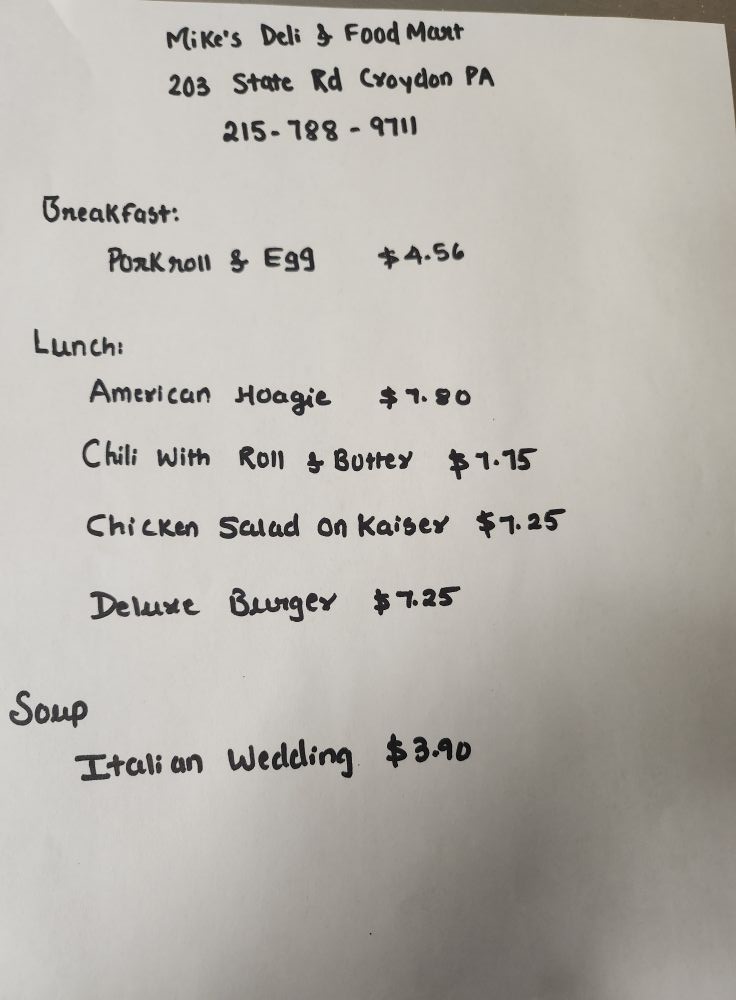 Mike's Deli & Food Mart
203 State Rd Croydon PA
215-788-9711
Breakfast:
Porkroll & Egg $4.56
Lunch:
American Hoagie $7.80
Chili With Roll & Butter $7.75
Chicken Salad on Kaiser $7.25
Deluxe Burger $7.25
Soup
Italian Wedding $3.90